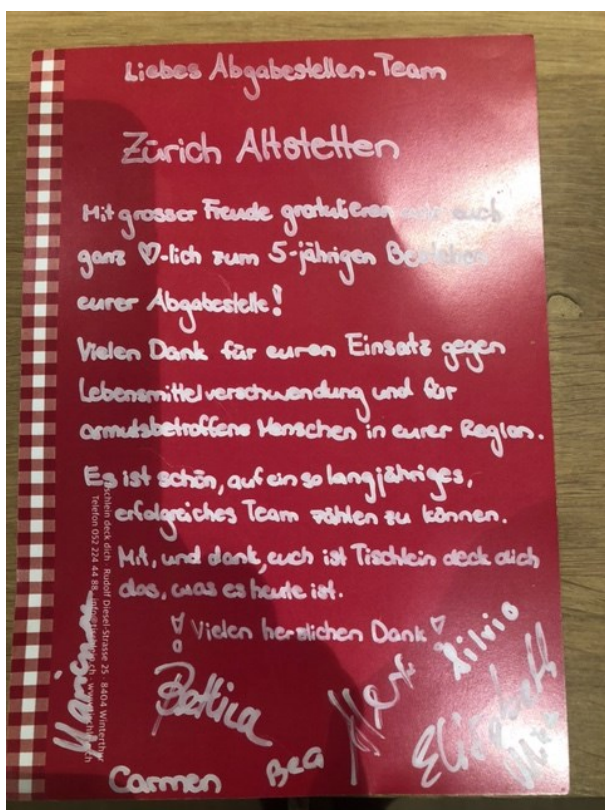 Liebes Abgabestellen-Team
Zürich Altstetten
Mit grosser Freude gratulieren wir euch
ganz ♡-lich zum 5-jährigen Bestehen
eurer Abgabestelle!
Vielen Dank für euren Einsatz gegen
Lebensmittelverschwendung und für
armutsbetroffene Menschen in eurer Region.
Es ist schön, auf ein so langjähriges,
erfolgreiches Team zählen zu können.
Mit, und dank, euch ist Tischlein deck dich
das, was es heute ist.
Vielen herzlichen Dank
Silvio
Bettina
Elisabeth
Carmen
Bea
Tischlein deck dich · Rudolf Diesel-Strasse 25 · 8404 Winterthur
Telefon 052 224 44 88